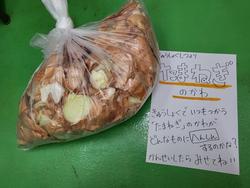 たまねぎ
のかわ
きゅうしょくで いつもつかう
"たまねぎ"のかわが
どんなものに へんしん
するのかな?
かんせいしたら みせてねい